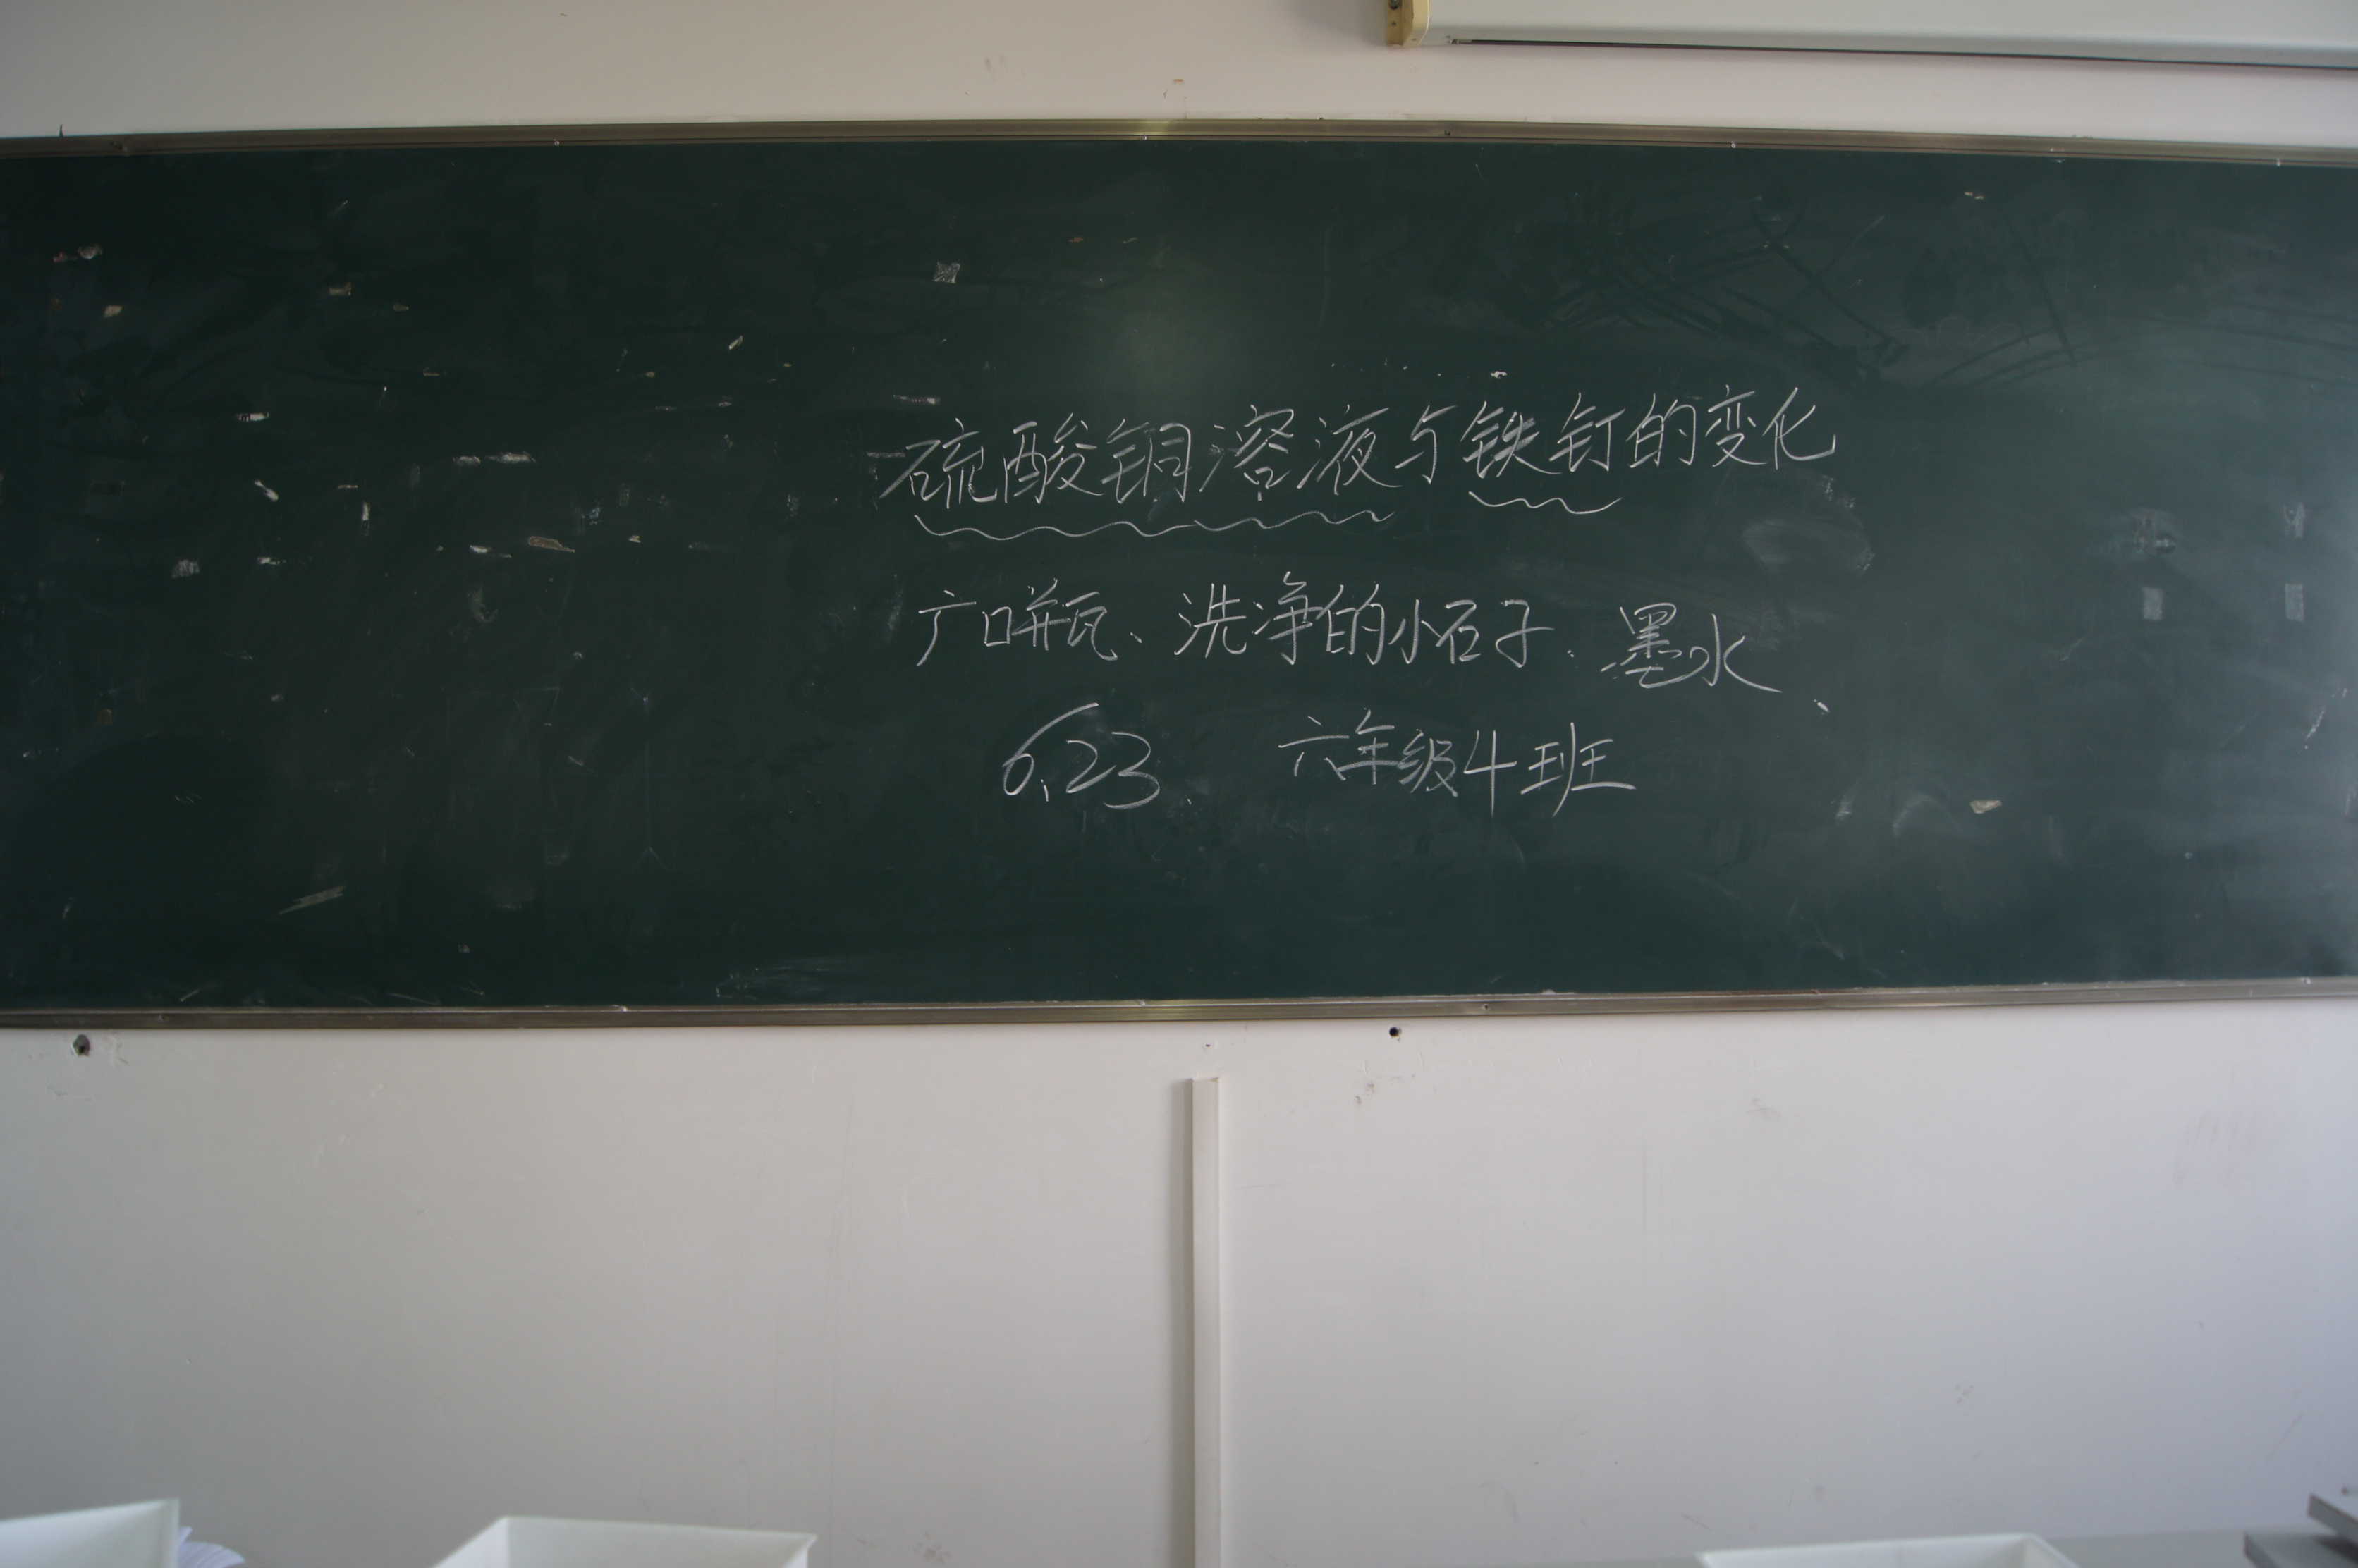 硫酸铜溶液与铁钉的变化
广口瓶、洗净的小石子、墨水、
6.23 六年级4班